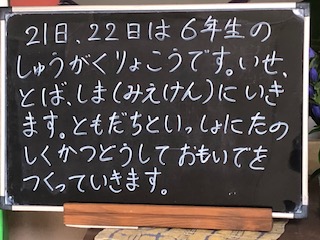 21日、22日は6年生の
しゅうがくりょこうです。いせ、
とば、しま(みえけん)にいき
ます。ともだちといっしょにたの
しくかつどうしておもいでを
つくっていきます。